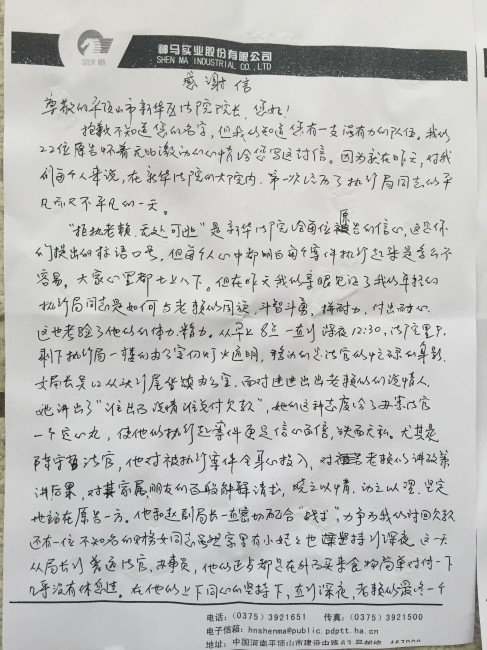 SHEN MA
神马实业股份有限公司
SHEN MA INDUSTRIAL CO., LTD
感谢信
尊敬的平顶山市新华区法院院长，您好！
抱歉不知道您的名字，但我们知道您有一支强有力的队伍。我们
22位原告怀着无比激动的心情给您写这封信。因为就在昨天，对我
们每个人来说，在新华法院的大院内，第一次经历了执行局同志们平
凡而又不平凡的一天。
"拒执老赖，无处可逃"是新华法院给每位原告的信心，这是你
们提出的标语口号，但每个人心中都明白每个案件执行起来是多么不
容易，大家心里都七上八下。但在昨天我们亲眼见证了我们年轻的
执行局同志是如何与老赖们周旋，斗智斗勇，拼耐力，付出耐心，
这也考验了他们的体力、精力。从早上8点一直到深夜12:30，法院里只
剩下执行局一楼的办公室仍灯火通明，晃动的是法官们忙碌的身影，
局长是从头到尾坐镇办公室，面对进进出出老赖们的说情人，
她讲出了"谁出面说情谁兑付欠款"，她的这种态度给了办案法官
一个定心丸，使他们执行起案件更是信心百倍，尤其是
陈宇哲法官，他对被执行案件全身心投入，对老赖们讲政策
讲后果，对其家属朋友们百般解释清楚，晓之以情，动之以理，坚定
地站在原告一方。他和赵副局长一直密切配合"战士"，力争为我们讨回欠款
还有一位不知名的女同志虽然家里有小妞也坚持到深夜。这一天
从局长到普通法官、办事员，他们连午都是在外面买来食物简单对付一下
几乎没有休息过。在他们上下同心的坚持下，直到深夜，老赖们最终一个
电话：(0375) 3921651 传真：(0375) 3921500
电子信箱：hnshenma@public.pdptt.ha.cn
地址：中国河南平顶山市建设中路63号邮编